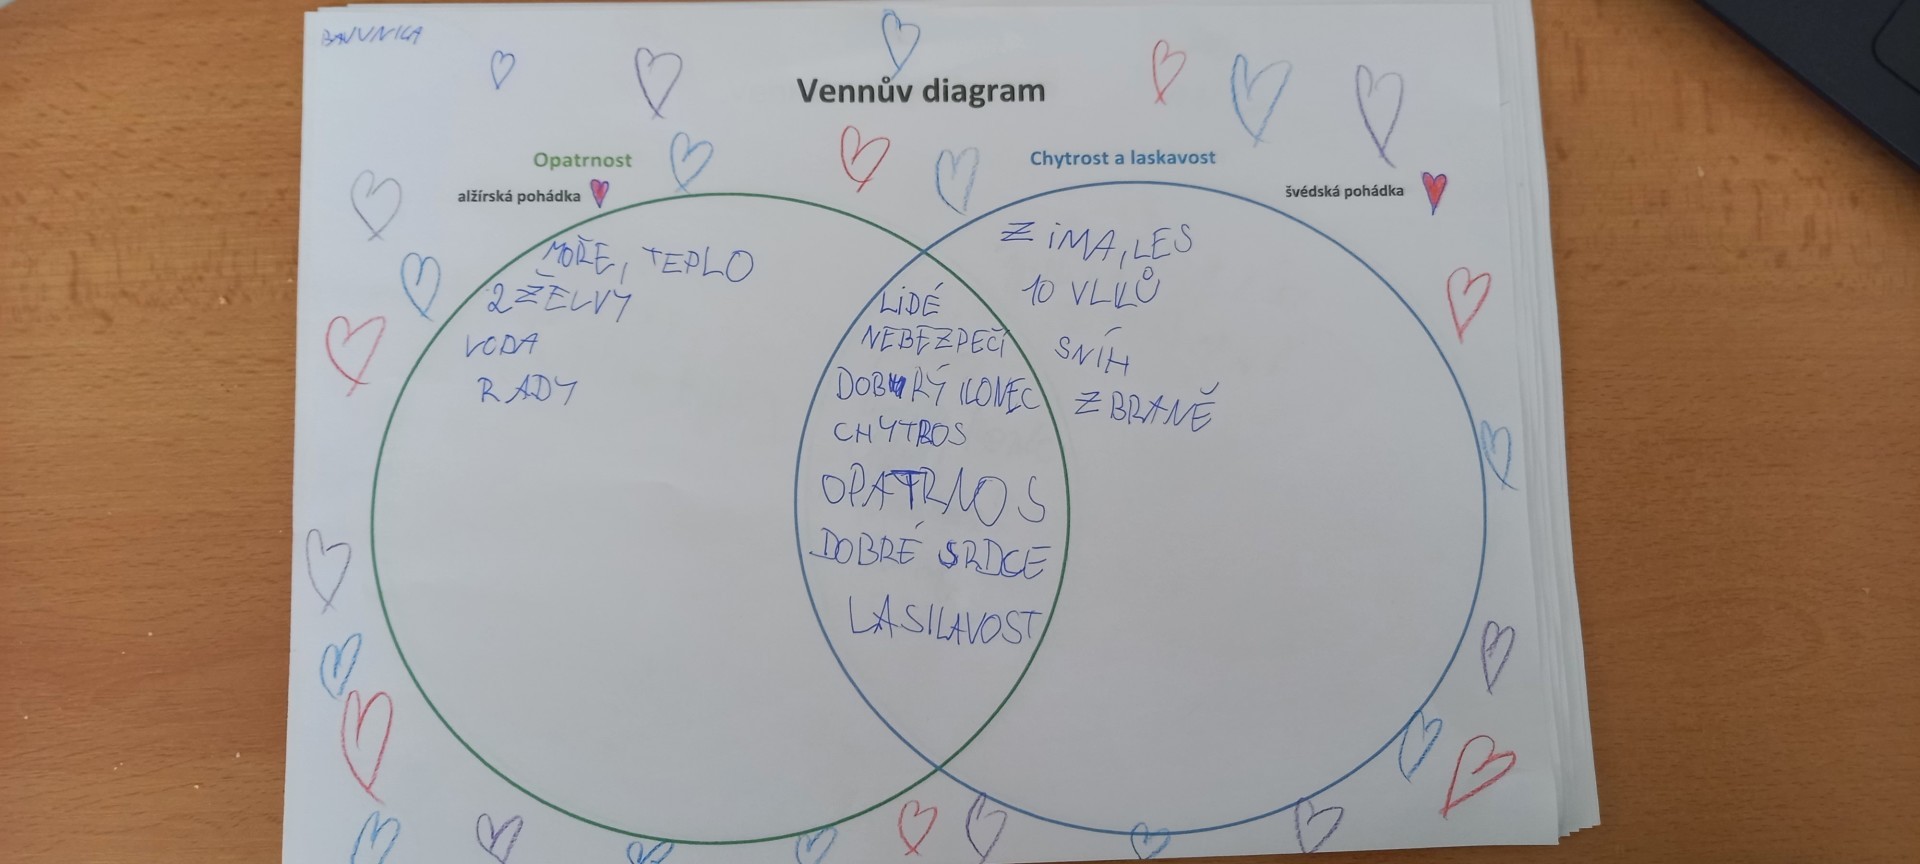 Vennův diagram
Opatrnost
alžírská pohádka
Chytrost a laskavost
švédská pohádka
MOŘE, TEPLO
2 ŽELVY
VODA
RADY
LIDÉ
NEBEZPEČÍ
DOBRÝ KONEC
CHYTROS
OPATRNOS
DOBRÉ SRDCE
LASKAVOST
ZIMA, LES
10 VLKŮ
SNÍH
ZBRANĚ